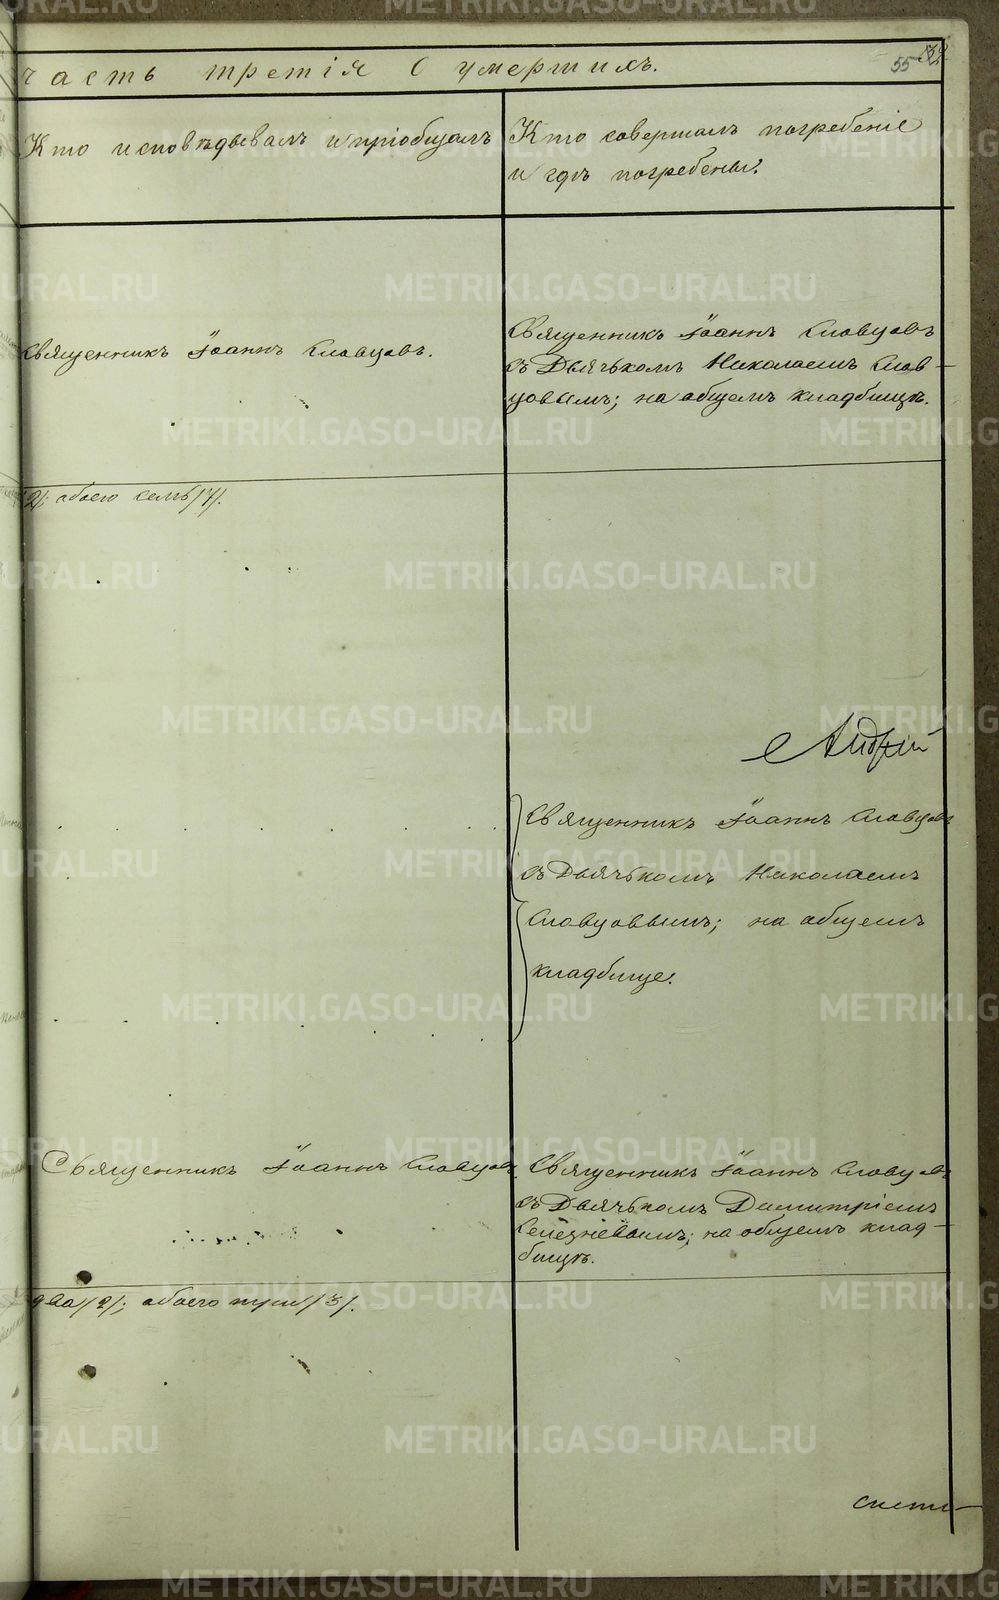 часть третія о умершихъ.
55
Кто исповѣдывалъ и пріобщалъ
Кто совершалъ погребеніе
и гдѣ погребены.
Священникъ Іоаннъ Словцовъ.
Священникъ Іоаннъ Словцовъ
съ Дьячькомъ Николаемъ Слов-
цовымъ; на общемъ кладбищѣ.
2/; обоего семь/7/.
Андрей
Священникъ Іоаннъ Словцовъ
съ Дьячькомъ Николаемъ
Словцовымъ; на общемъ
кладбище.
Священникъ Іоаннъ Словцовъ
Священникъ Іоаннъ Словцовъ
съ Дьячькомъ Димитріемъ
Селезнёвымъ; на общемъ клад-
бищѣ.
два/2/; обоего три/3/.
METRIKI.GASO-URAL.RU